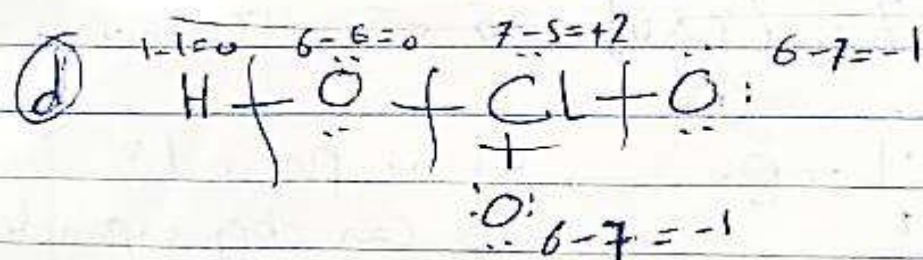 1-1=0 6-6=0 7-5=+2 6-7=-1
d H O Cl O
O 6-7=-1